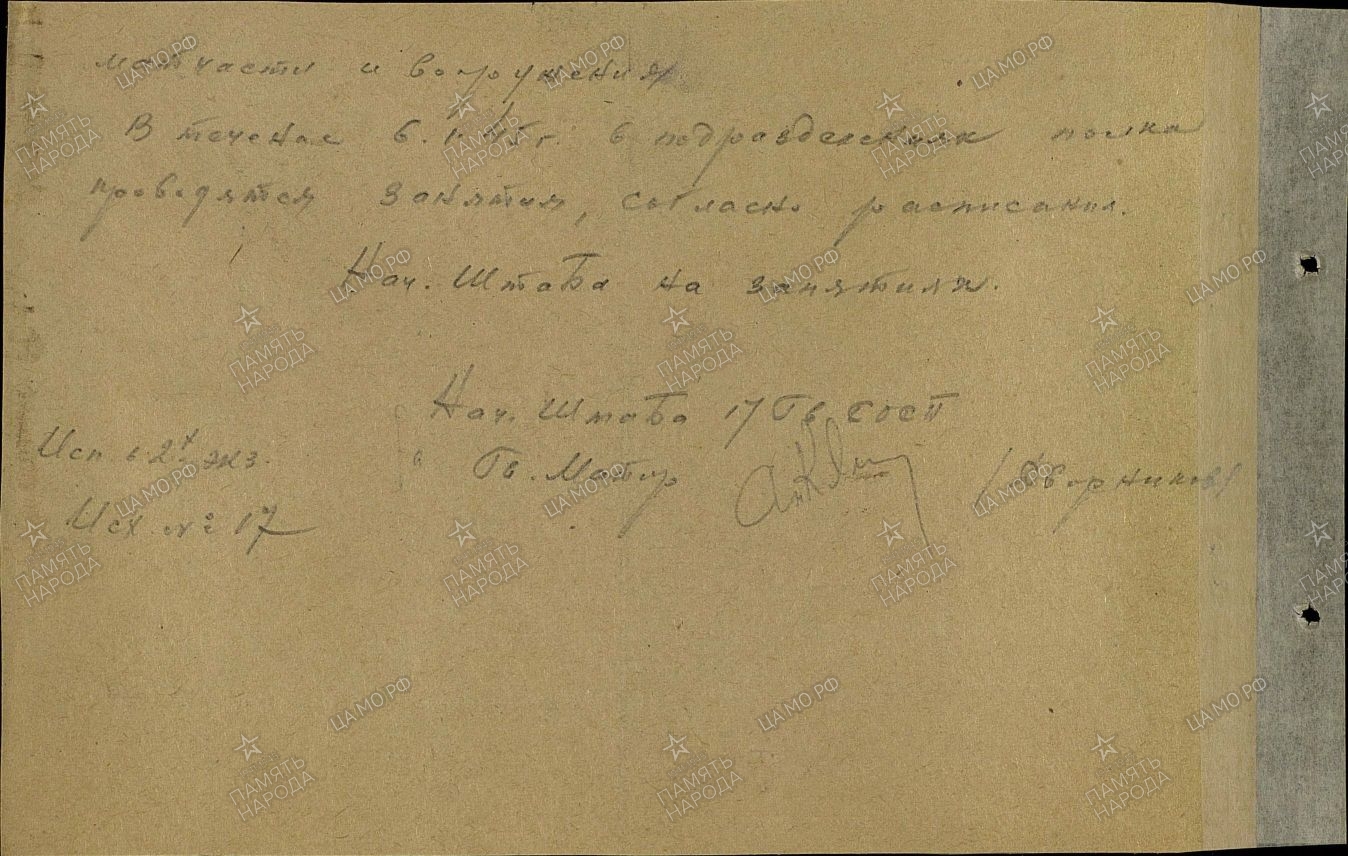 матчасти и вооружения
В течение 6.1.45г. в подразделениях полка
проводятся занятия, согласно расписания.
Нач. Штаба на занятиях.
Нач. Штаба 17 Гв.
Исп. в 2х экз.
Гв. Майор (Дворников)
Исх. № 17
ЦАМО.РФ
ПАМЯТЬ
НАРОДА